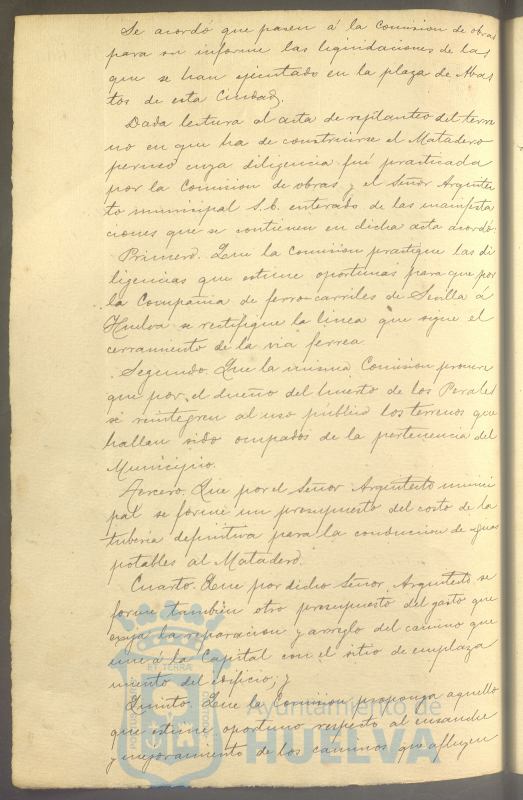 Se acordó que pasen á la Comision de obras
para su informe las liquidaciones de las
que se han ejecutado en la plaza de Abas
tos de esta Ciudad.
Dada lectura al acta de replanteo del terre
no en que ha de construirse el Matadero
permiso cuya diligencia fué practicada
por la Comision de obras y el Señor Arquitec
to municipal S.E. enterado de las manifesta
ciones que se contienen en dicha acta acordó:
Primero. Que la Comision practique las di
ligencias que estime oportunas para que por
la Compañia de ferro-carriles de Sevilla á
Huelva se rectifique la linea que sigue el
cerramiento de la via ferrea.
Segundo. Que la misma Comision procure
que por el dueño del huerto de los Perales
se reintegren al uso público los terrenos que
hallan sido ocupados de la pertenencia del
Municipio.
Tercero. Que por el Señor Arquitecto munici
pal se forme un presupuesto del costo de la
tuberia definitiva para la conduccion de aguas
potables al Matadero.
Cuarto. Que por dicho Señor Arquitecto se
forme también otro presupuesto del gasto que
exija la reparacion y arreglo del camino que
une á la Capital con el sitio de emplaza
miento del edificio; y
Quinto. Que la Comision proponga aquello
que estime oportuno respecto al ensanche
y mejoramiento de los caminos que afluyen
Ayuntamiento de
HUELVA